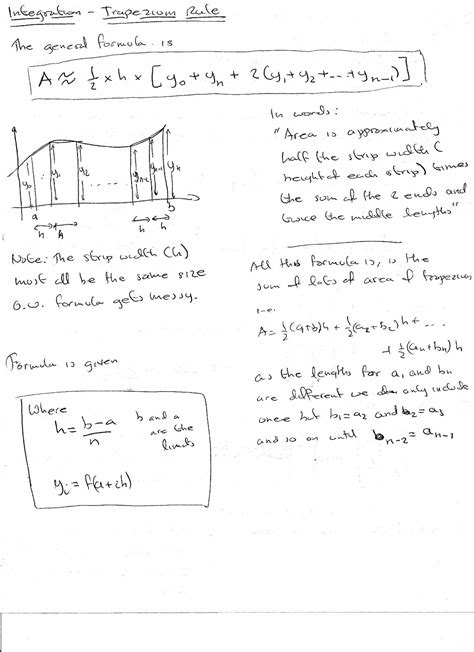 Integration - Trapezium Rule
The general formula is
A ≈ 1/2 × h × [y₀ + yₙ + 2(y₁ + y₂ + ... + yₙ₋₁)]
In words:
"Area is approximately
half the strip width (
height of each strip) times
the sum of the 2 ends and
twice the middle lengths"
y₀ y₁ y₂ ...... yₙ₋₂ yₙ₋₁ yₙ
a b
h h h h
Note: The strip width (h)
must all be the same size
O.w. formula gets messy.
All this formula is, is the
sum of lots of area of trapezium,
i.e.
A = 1/2(a+b)h + 1/2(a₂+b₂)h + ...
+ 1/2(aₙ+bₙ)h
as the lengths for a, and bn
are different we only include
once but b₁=a₂ and b₂=a₃
and so on until bₙ₋₂ = aₙ₋₁
Formula is given
Where
h = b-a/n
b and a
are the
limits
yᵢ = f(a+ih)